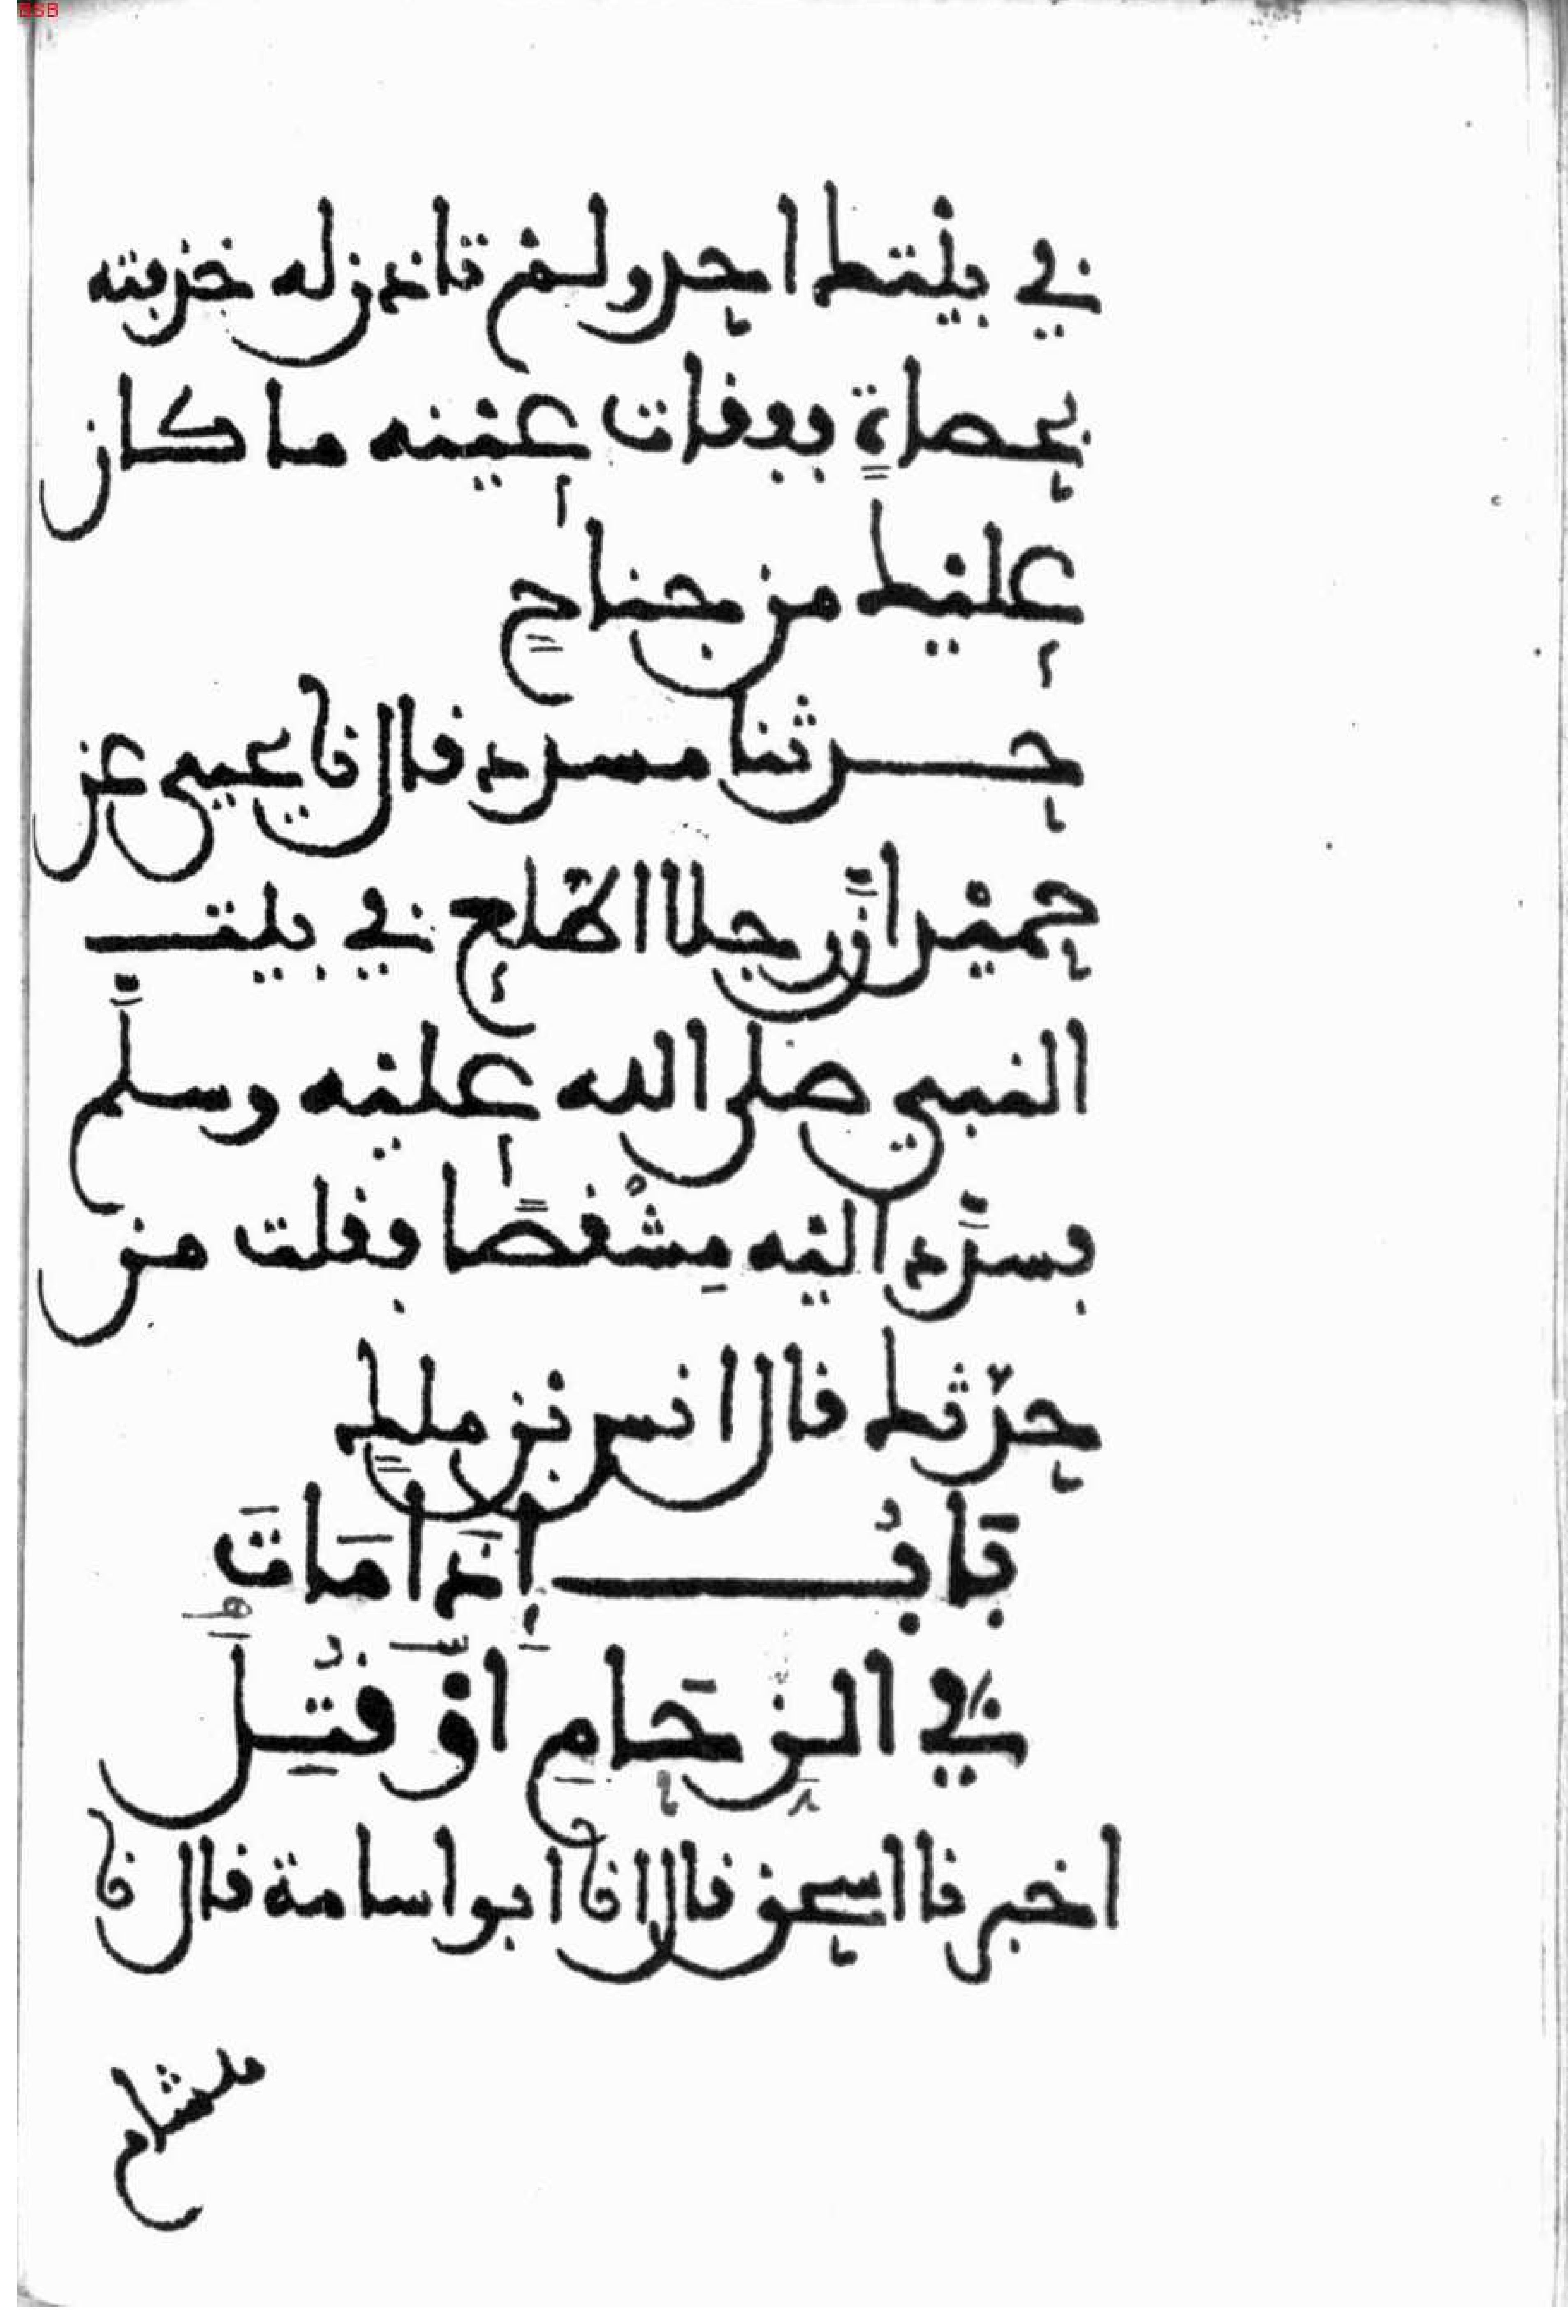 في بيتك احد ولم تاذن له خذفته
بحصاةٍ ففقات عينه ما كان
عليك من جناحٍ
حدثنا مسدد قال نا يحيى عن
حميد انّ رجلا اطلع في بيت
النبي صلى الله عليه وسلّم
فسدّد اليه مِشْقصًا فقلت من
حدّثك قال انس بن ملكٍ
بَابُ إِذَا مَاتَ
فِي الزِّحَامِ اَوْ قُتِلَ
اخبرنا اسحق قال انا ابو اسامة قال نا
هشام